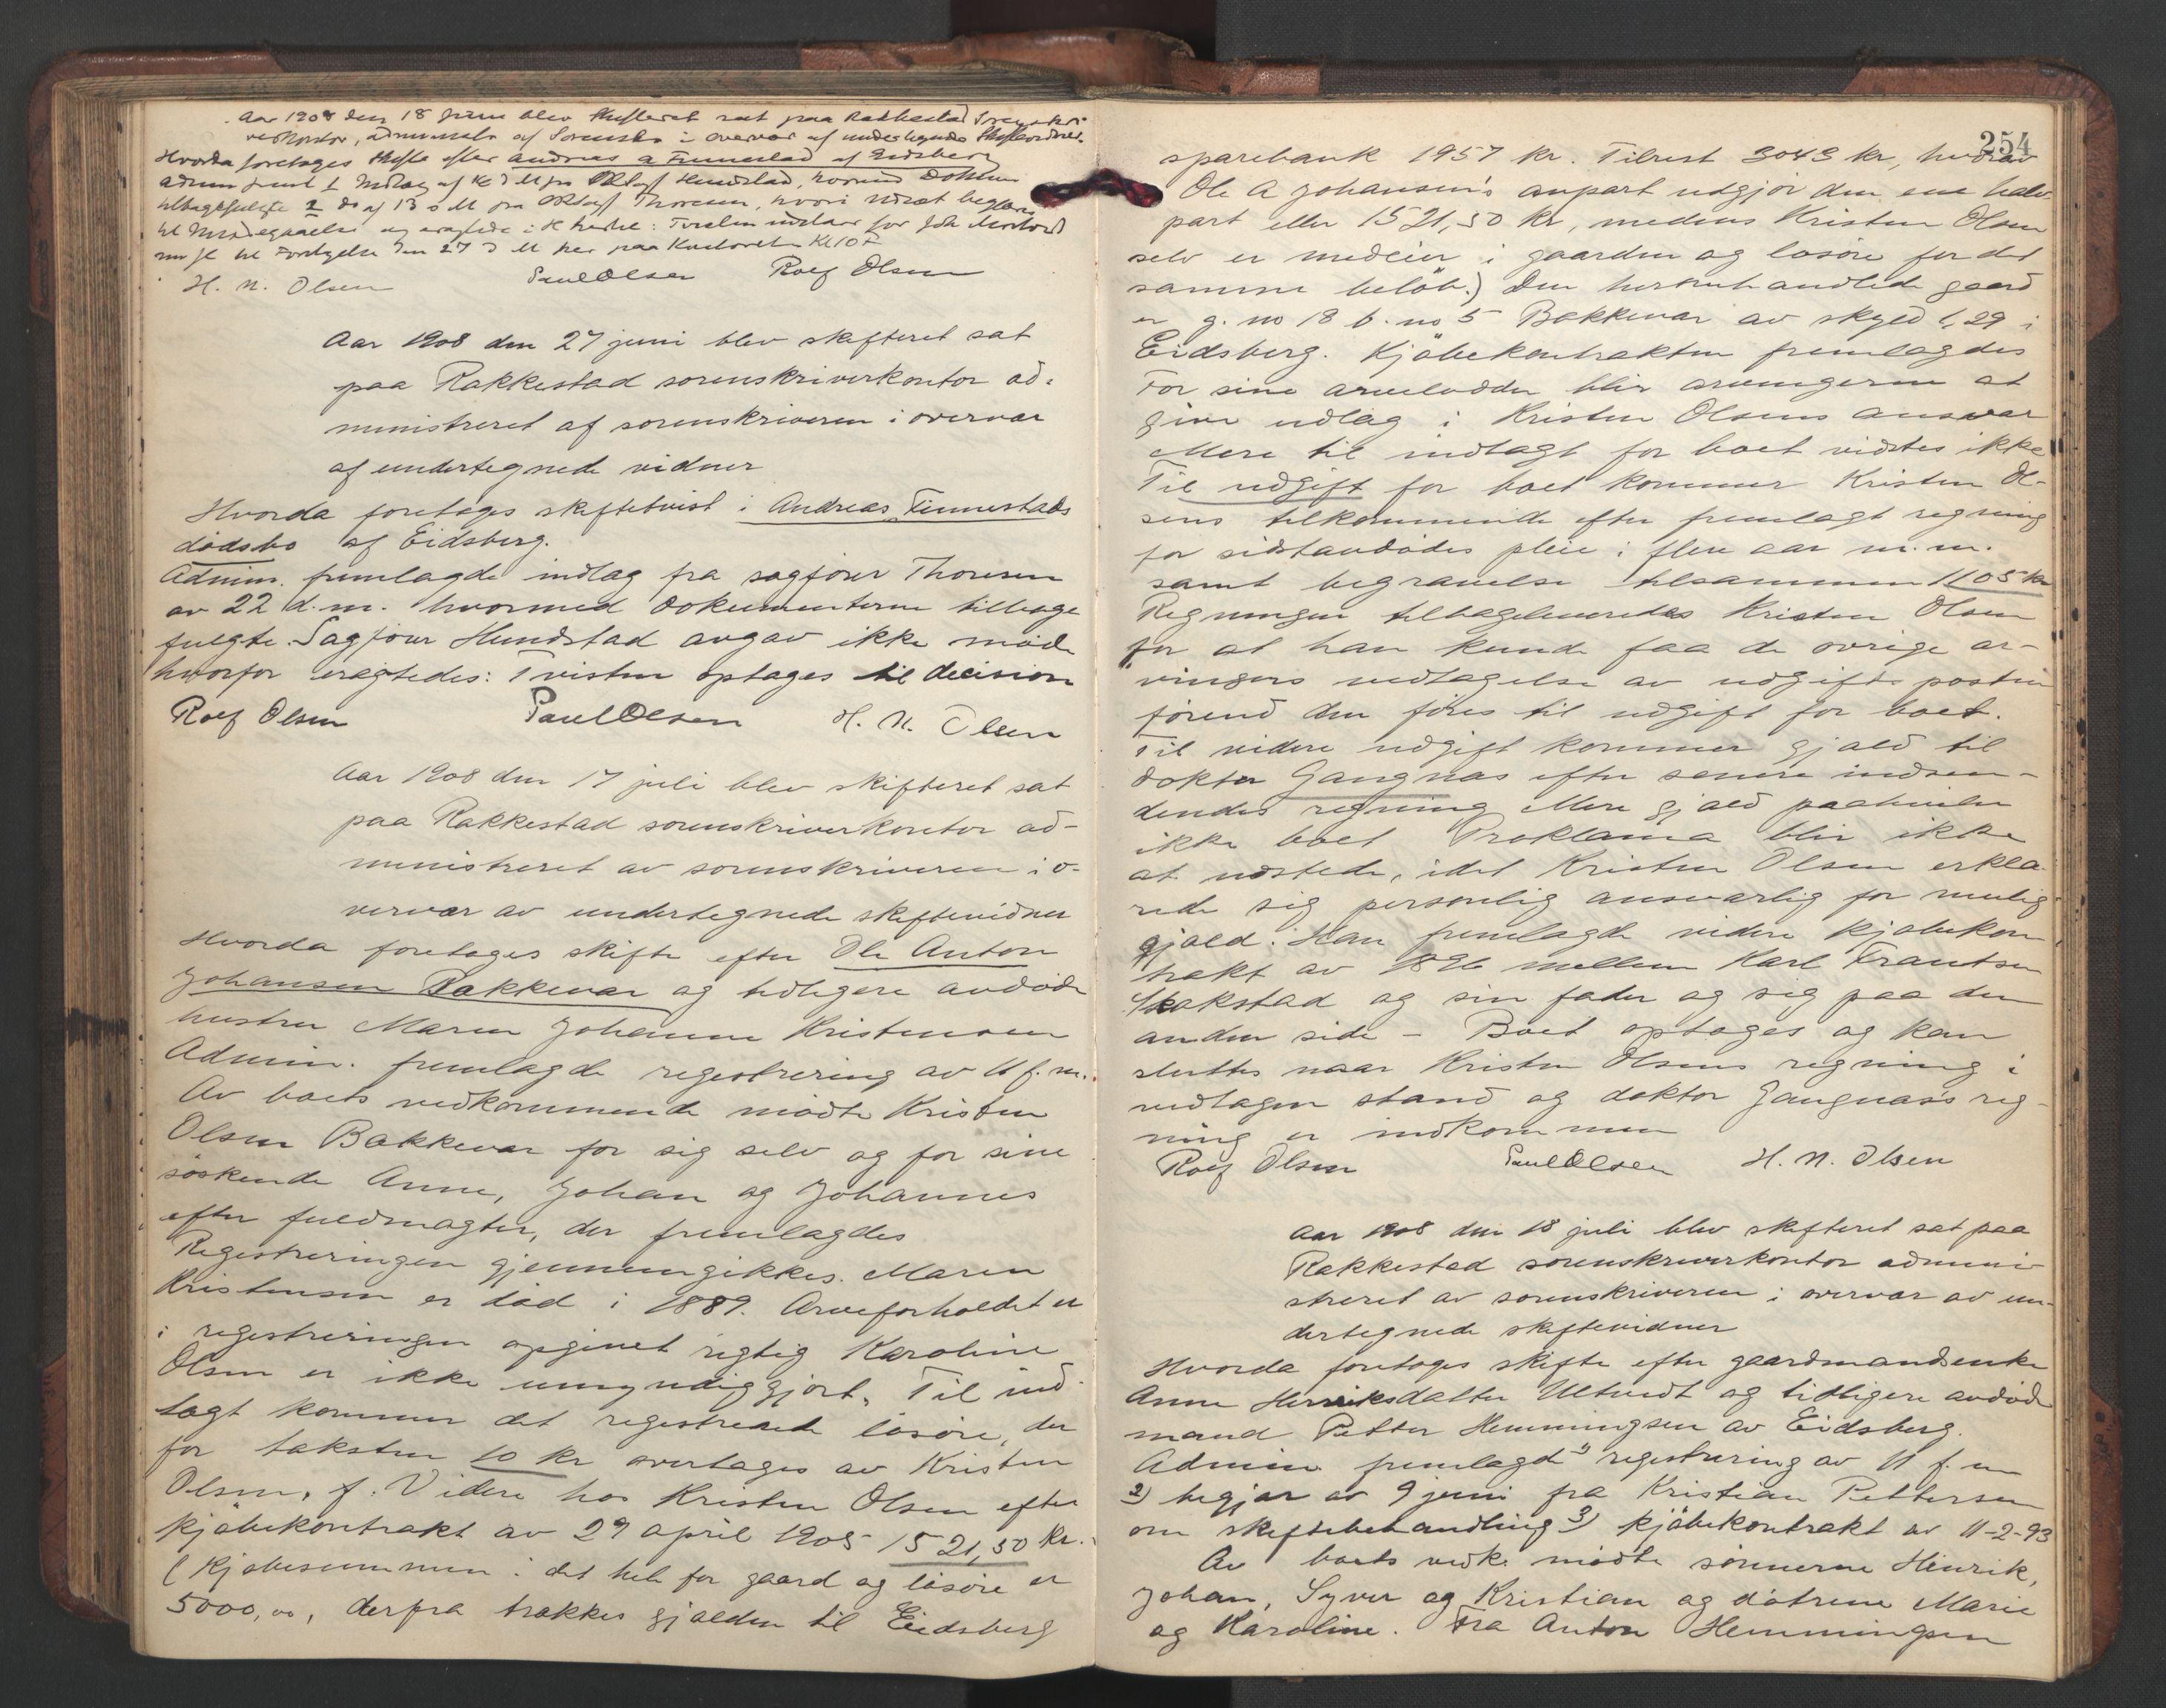 Aar 1908 den 18 juni blev skifteret sat paa Rakkestad Sorenskri-
verkontor, administr. af Sorenskr. i overvær af undertegnede Skiftevidner.
Hvorda foretages Skifte efter Andreas A Finnestad af Eidsberg
Admin freml 1 Indlæg af 16 d M fra Hundstad, hvorved Dokum
tilbagefulgte 2 do af 13 d M fra Thoresen, hvori
til Imødegaaelse
til Forelæggelse den 27 d M her paa Kontoret Kl 10 F
H. N. Olsen Paul Olsen Rolf Olsen
Aar 1908 den 27 juni blev skifteret sat
paa Rakkestad sorenskriverkontor ad-
ministreret af sorenskriveren i overvær
af undertegnede vidner
Hvorda foretages skiftetvist i Andreas Finnestads
dödsbo af Eidsberg.
Admin. fremlagde indlæg fra sagförer Thoresen
av 22 d. m. hvormed dokumenterne tilbage
fulgte. Sagförer Hundstad avgav ikke möde
hvorfor eragtedes: Tvisten optages til decision
Rolf Olsen Paul Olsen H. N. Olsen
Aar 1908 den 17 juli blev skifteret sat
paa Rakkestad sorenskriverkontor ad-
ministreret av sorenskriveren i o-
vervær av undertegnede skiftevidner
Hvorda foretages skifte efter Ole Anton
Johansen Bakkevar og tidligere avdöde
hustru Maren Johanne Kristensen
Admin. fremlagde registrering av 11 f. m.
Av boets vedkommende mödte Kristen
Olsen Bakkevar for sig selv og for sine
söskende Anne, Johan og Johannes
efter fuldmagter, der fremlagdes
Registreringen gjennemgikkes. Maren
Kristensen er död i 1889. Arveforholdet er
i registreringen opgivet rigtig Karoline
Olsen er ikke umyndiggjort. Til ind-
tægt kommer det registrerede lösöre, der
for taksten 10 kr overtages av Kristen
Olsen, f. Videre hos Kristen Olsen efter
kjöbekontrakt av 29 april 1905 1521,50 kr.
(Kjöbesummen i det hele for gaard og lösöre er
5000,00, derfra trækkes gjælden til Eidsberg
254
sparebank 1957 kr. Tilrest 3043 kr, hvorav
Ole A Johansen's anpart udgjör den ene halv-
part eller 1521,50 kr, medens Kristen Olsen
selv er medeier i gaarden og lösöre for det
samme belöb.) Den heromhandlede gaard
er g. no 18 b. no 5 Bakkevar av skyld 1,29 i
Eidsberg. Kjöbekontrakten fremlagdes
For sine arvelodder blir arvingerne at
give udlæg i Kristen Olsens ansvar
Mere til indtægt for boet vidstes ikke
Til udgift for boet kommer Kristen Ol-
sens tilkommende efter fremlagt regning
for sidstavdödes pleie i flere aar m. m.
samt begravelse tilsammen 1105 kr
Regningen tilbageleveredes Kristen Olsen
for at han kunde faa de övrige ar-
vingers vedtagelse av udgiftsposten
förend den föres til udgift for boet.
Til videre udgift kommer gjæld til
doktor Gangnæs efter senere indsen-
dendes regning Mere gjæld paahviler
ikke boet Proklama blir ikke
at udstede, idet Kristen Olsen erklæ-
rede sig personlig ansvarlig for mulig
gjæld. Han fremlagde videre kjöbekon-
trakt av 1896 mellem Karl Frantsen
Skakstad og sin fader og sig paa den
anden side - Boet optages og kan
sluttes naar Kristen Olsens regning i
vedtagen stand og doktor Gangnæs's reg-
ning er indkommen
Rolf Olsen Paul Olsen H. N. Olsen
Aar 1908 den 18 juli blev skifteret sat paa
Rakkestad sorenskriverkontor admini-
streret av sorenskriveren i overvær av un-
dertegnede skiftevidner
Hvorda foretages skifte efter gaardmandsenke
Anne Henriksdatter Ultvedt og tidligere avdöde
mand Petter Hemmingsen av Eidsberg.
Admin fremlagde 1) registrering av 11 f. m
2) begjær av 9 juni fra Kristian Pettersen
om skiftebehandling 3) kjöbekontrakt av 11-2-93
Av boets vedk. mödte sönnerne Henrik,
Johan, Syver og Kristian og dötrene Marie
og Karoline. Fra Anton Hemmingsen